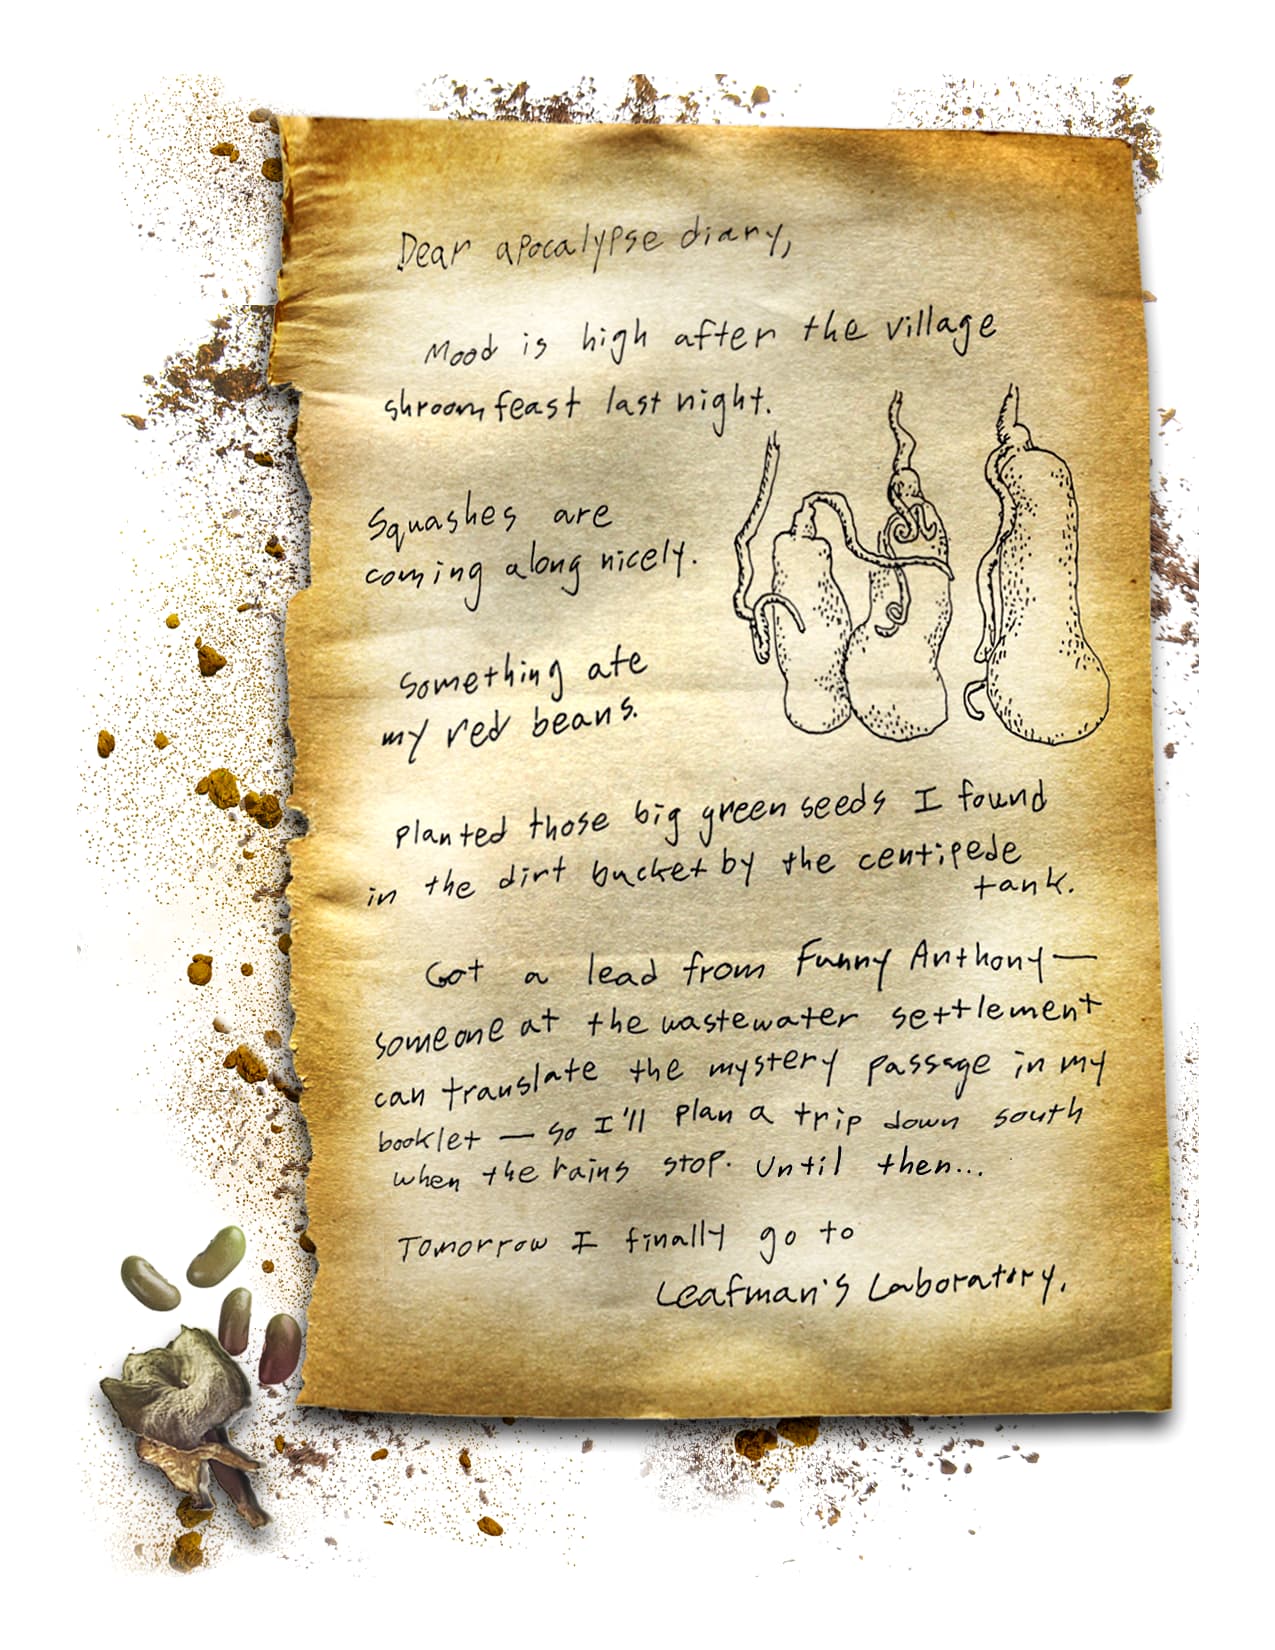 Dear apocalypse diary,
Mood is high after the village
shroom feast last night.
Squashes are
coming along nicely.
Something ate
my red beans.
Planted those big green seeds I found
in the dirt bucket by the centipede
tank.
Got a lead from Funny Anthony—
someone at the wastewater settlement
can translate the mystery passage in my
booklet — so I'll plan a trip down south
when the rains stop. Until then...
Tomorrow I finally go to
Leafman's Laboratory.